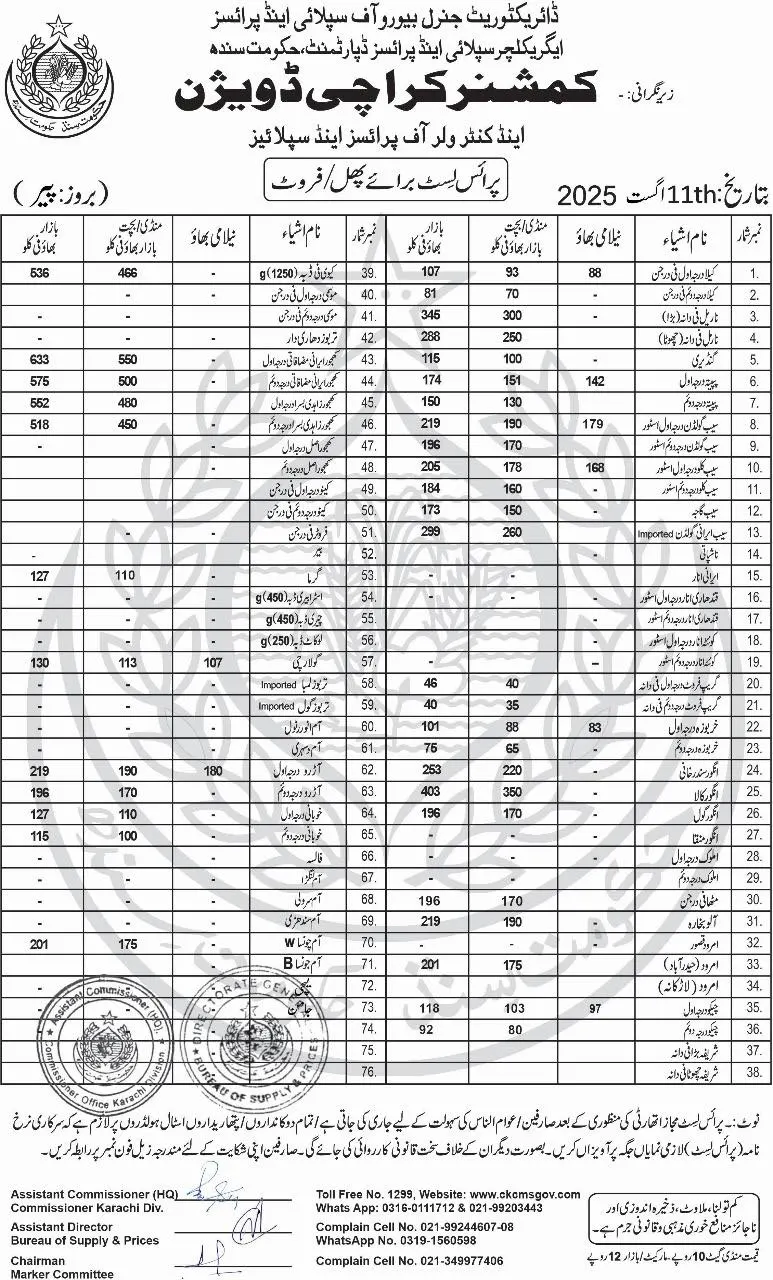 ڈائریکٹوریٹ جنرل بیورو آف سپلائی اینڈ پرائسز
ایگریکلچر سپلائی اینڈ پرائسز ڈپارٹمنٹ، حکومت سندھ
زیرِ نگرانی: -
کمشنر کراچی ڈویژن
اینڈ کنٹرولر آف پرائسز اینڈ سپلائیز
پرائس لسٹ برائے پھل/فروٹ
بتاریخ: 11th اگست 2025
(بروز: پیر)
نمبر شمار نام اشیاء نیلامی بھاؤ منڈی/بچت بازار بھاؤ فی کلو بازار بھاؤ فی کلو
1. کیلا درجہ اول فی درجن 88 93 107
2. کیلا درجہ دوئم فی درجن - 70 81
3. ناریل فی دانہ (بڑا) - 300 345
4. ناریل فی دانہ (چھوٹا) - 250 288
5. گنڈیری - 100 115
6. پپیتہ درجہ اول 142 151 174
7. پپیتہ درجہ دوئم - 130 150
8. سیب گولڈن درجہ اول اسٹور 179 190 219
9. سیب گولڈن درجہ دوئم اسٹور - 170 196
10. سیب کلو درجہ اول اسٹور 168 178 205
11. سیب کلو درجہ دوئم اسٹور - 160 184
12. سیب گاچہ - 150 173
13. سیب ایرانی گولڈن Imported - 260 299
14. ناشپاتی -
15. ایرانی انار - - -
16. قندھاری انار درجہ اول اسٹور - - -
17. قندھاری انار درجہ دوئم اسٹور - - -
18. کوئٹہ انار درجہ اول اسٹور -
19. کوئٹہ انار درجہ دوئم اسٹور - - -
20. گریپ فروٹ درجہ اول فی دانہ - 40 46
21. گریپ فروٹ درجہ دوئم فی دانہ - 35 40
22. خربوزہ درجہ اول 83 88 101
23. خربوزہ درجہ دوئم - 65 75
24. انگور سندرخانی - 220 253
25. انگور کالا - 350 403
26. انگور گول - 170 196
27. انگور منقا - - -
28. املوک درجہ اول - - -
29. املوک درجہ دوئم - - -
30. مٹھا فی درجن - 170 196
31. آلو بخارہ - 190 219
32. امرود قصور - - -
33. امرود (حیدرآباد) - 175 201
34. امرود (لاڑکانہ) -
35. چیکو درجہ اول 97 103 118
36. چیکو درجہ دوئم - 80 92
37. شریفہ بڑا فی دانہ -
38. شریفہ چھوٹا فی دانہ -
نمبر شمار نام اشیاء نیلامی بھاؤ منڈی/بچت بازار بھاؤ فی کلو بازار بھاؤ فی کلو
39. کیوی فی ڈبہ g(1250) - 466 536
40. موسمی درجہ اول فی درجن - - -
41. موسمی درجہ دوئم فی درجن - - -
42. تربوز دھاری دار - - -
43. کھجور ایرانی مضافاتی درجہ اول - 550 633
44. کھجور ایرانی مضافاتی درجہ دوئم - 500 575
45. کھجور زاہدی بسرا درجہ اول - 480 552
46. کھجور زاہدی بسرا درجہ دوئم - 450 518
47. کھجور اصل درجہ اول - -
48. کھجور اصل درجہ دوئم - -
49. کینو درجہ اول فی درجن -
50. کینو درجہ دوئم فی درجن -
51. فروٹر فی درجن - - -
52. بیر - -
53. گرما - 110 127
54. اسٹرابیری ڈبہ g(450) - - -
55. چیری ڈبہ g(450) - - -
56. لوکاٹ ڈبہ g(250) - - -
57. گولارچی 107 113 130
58. تربوز لمبا Imported - - -
59. تربوز گول Imported - - -
60. آم انور رٹول - - -
61. آم دسہری - - -
62. آڑو درجہ اول 180 190 219
63. آڑو درجہ دوئم - 170 196
64. خوبانی درجہ اول - 110 127
65. خوبانی درجہ دوئم - 100 115
66. فالسہ - - -
67. آم لنگڑا - - -
68. آم سرولی - - -
69. آم سندھڑی - - -
70. آم چونسا W - 175 201
71. آم چونسا B -
72. لیچی
73. جامن
74.
75.
76.
Assistant Commissioner (HQ).
Commissioner Office Karachi Division
DIRECTORATE GENERAL
BUREAU OF SUPPLY & PRICES
نوٹ:۔ پرائس لسٹ مجاز اتھارٹی کی منظوری کے بعد صارفین/عوام الناس کی سہولت کے لیے جاری کی جاتی ہے/تمام دوکانداروں/پتھاریداروں اسٹال ہولڈروں پر لازم ہے کہ سرکاری نرخ
نامہ (پرائس لسٹ) لازمی نمایاں جگہ پر آویزاں کریں۔ بصورت دیگر ان کے خلاف سخت قانونی کارروائی کی جائے گی۔ صارفین اپنی شکایت کے لئے مندرجہ زیل فون نمبر پر رابطہ کریں۔
Assistant Commissioner (HQ)
Commissioner Karachi Div.
Assistant Director
Bureau of Supply & Prices
Chairman
Marker Committee
Toll Free No. 1299, Website: www.ckcmsgov.com
Whats App: 0316-0111712 & 021-99203443
Complain Cell No. 021-99244607-08
WhatsApp No. 0319-1560598
Complain Cell No. 021-349977406
کم تولنا، ملاوٹ، ذخیرہ اندوزی اور
ناجائز منافع خوری مذہبی و قانونی جرم ہے۔
قیمت منڈی گیٹ 10 روپے، مارکیٹ/بازار 12 روپے